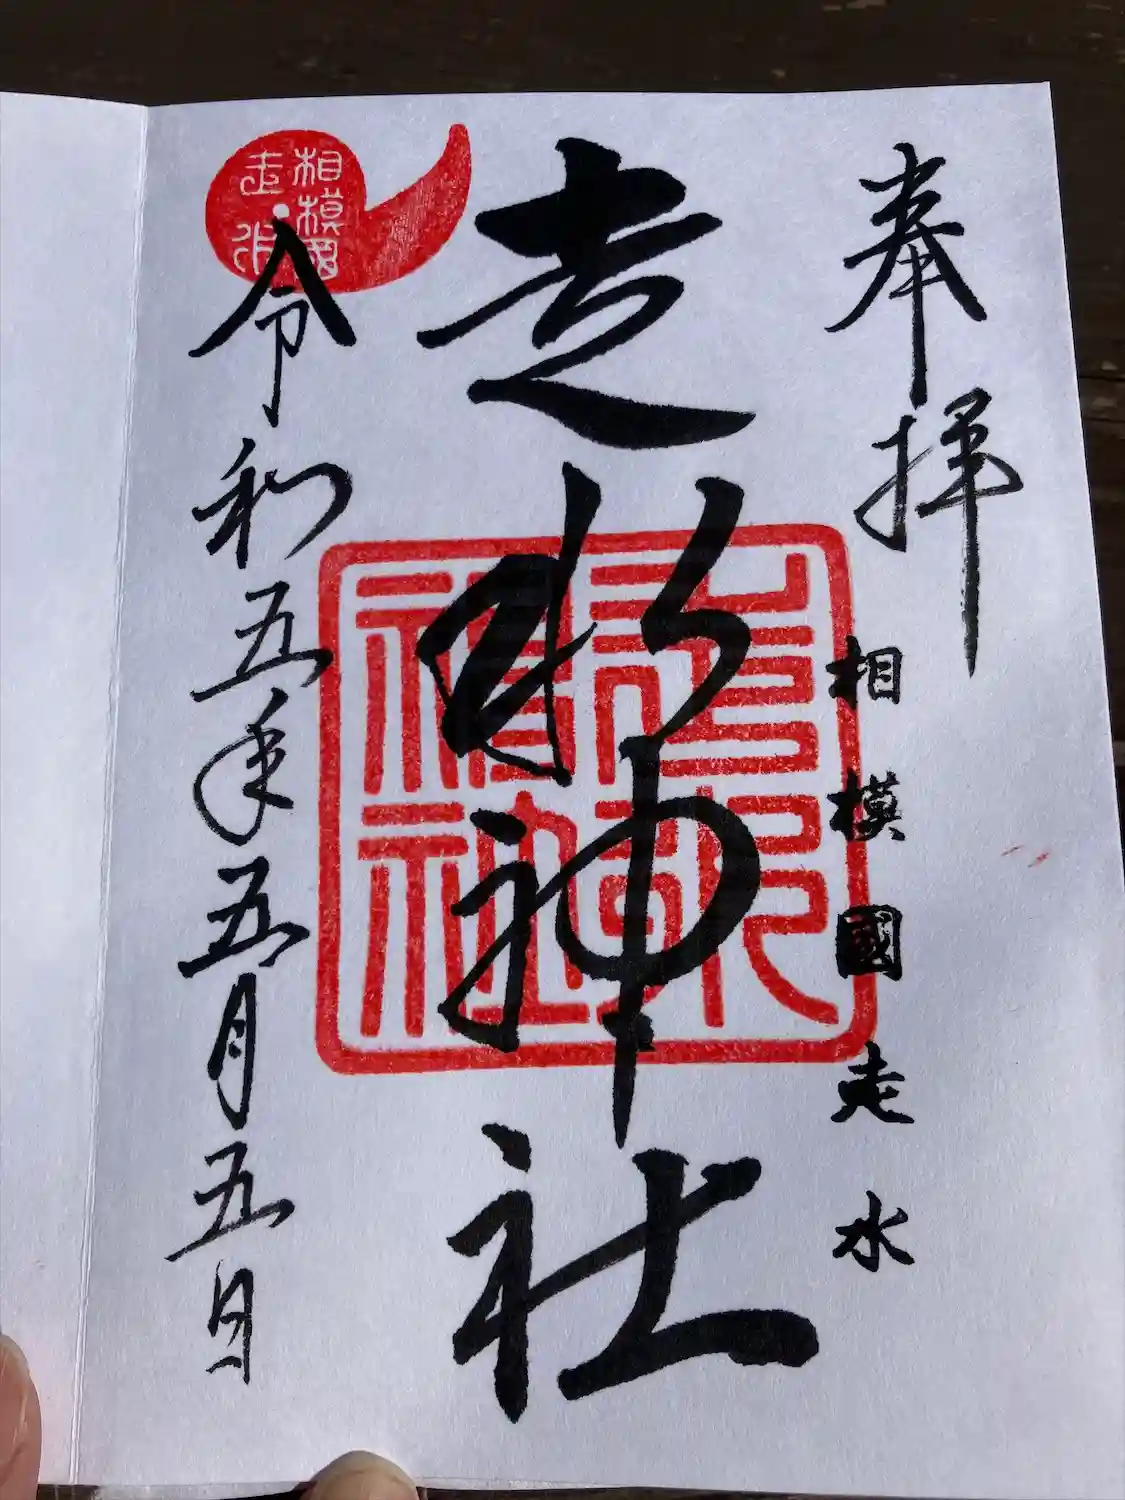 奉拝
相模國走水
走水神社
令和五年五月五日
相模國
走水
走水
神社